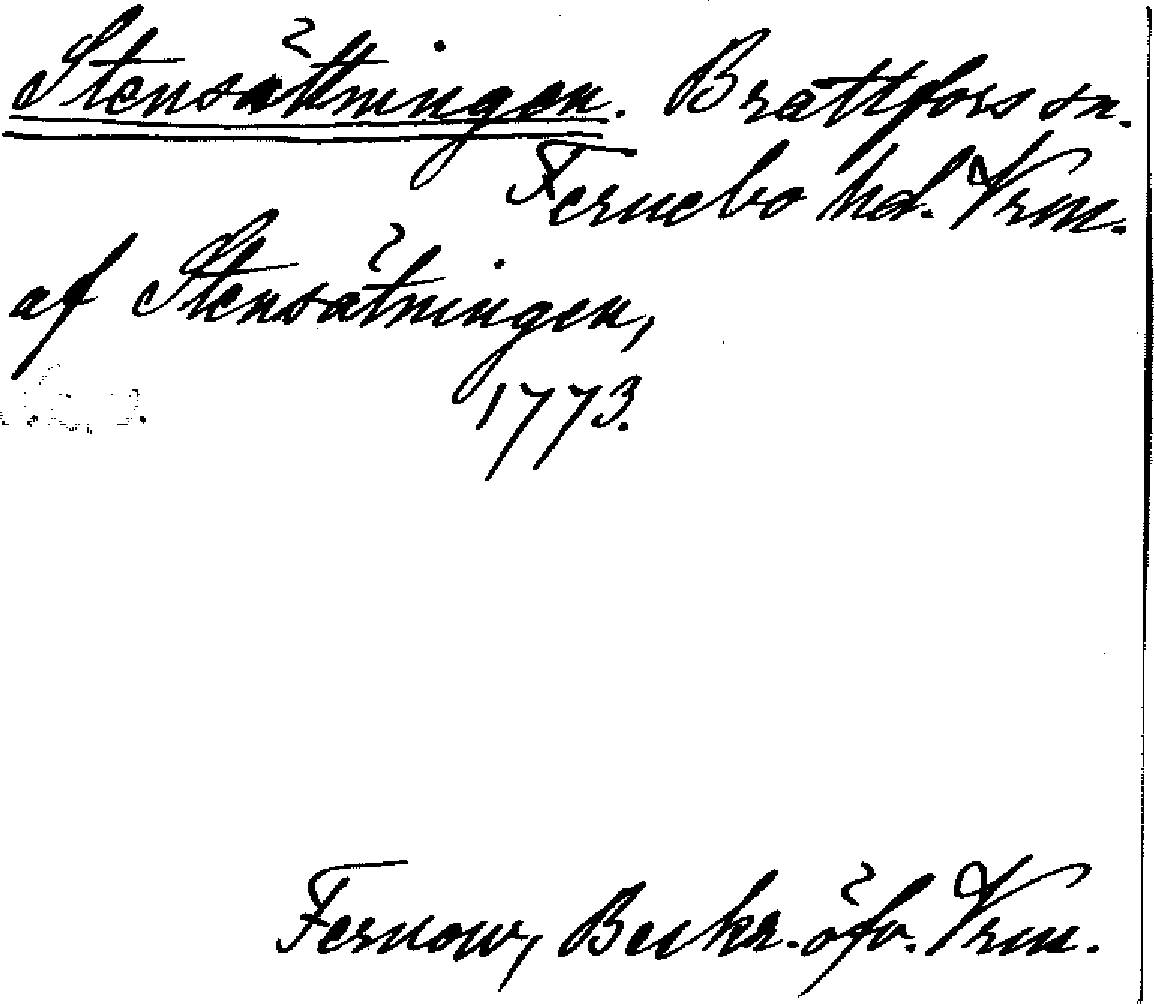 Stensättningen. Brattfors sn.
Fernebo hd. Vrm.
af Stensätningen,
1773.
Fernow, Beskr. öfv. Vrm.